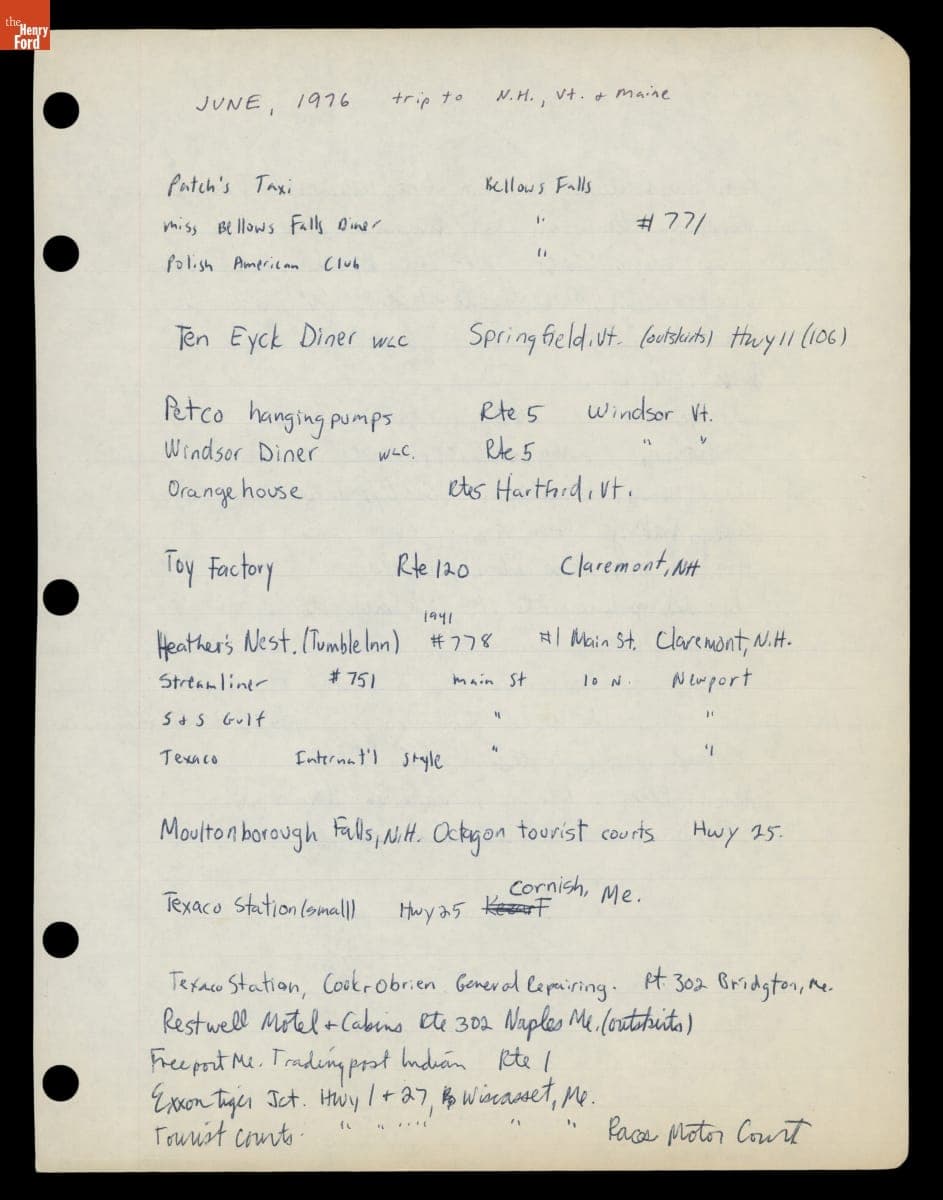 the
Henry
Ford
JUNE, 1976 trip to N.H., Vt. + Maine
Patch's Taxi Bellows Falls
Miss Bellows Falls Diner " #771
Polish American Club "
Ten Eyck Diner WLC Springfield, Vt. (outskirts) Hwy 11 (106)
Petco hanging pumps Rte 5 Windsor Vt.
Windsor Diner WLC. Rte 5 " "
Orange house Rte 5 Hartford, Vt.
Toy Factory Rte 120 Claremont, NH
1941
Heather's Nest. (Tumble Inn) #778 #1 Main St. Claremont, N.H.
Streamliner #751 Main St 10 N. Newport
S + S Gulf " "
Texaco Internat'l Style " "
Moultonborough Falls, N.H. Octagon tourist courts Hwy 25.
Texaco Station (small) Hwy 25 Cornish, Me.
Texaco Station, Cook + Obrien General Repairing. Rt. 302 Bridgton, Me.
Restwell Motel + Cabins Rte 302 Naples Me. (outskirts)
Freeport Me. Trading post Indian Rte 1
Exxon tiger Jct. Hwy 1 + 27, Wiscasset, Me.
Tourist courts " " " " " " Motor Court